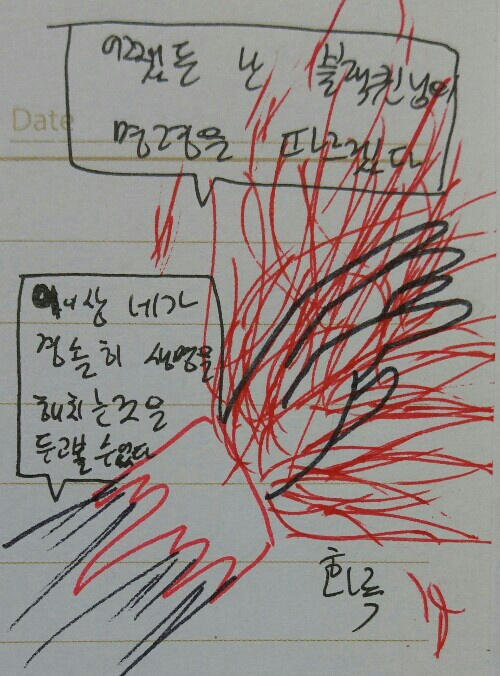 Date
어쨌든 난 블랙퀸님의
명령을 따르겠다
이상 네가
경솔히 생명을
해치는것을
두고볼 수 없다
화륵